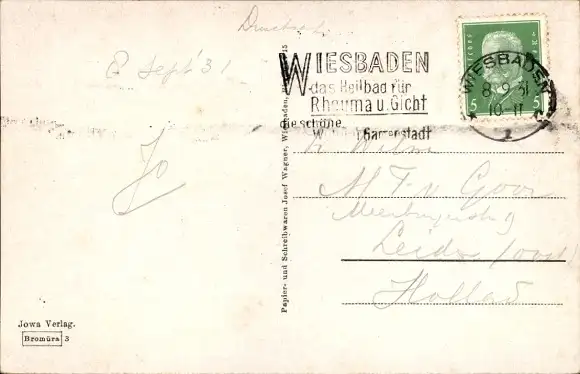 Drucksache
8 Sept '31
WIESBADEN
das Heilbad für
Rheuma u. Gicht
die schöne
Gartenstadt
WIESBADEN
8.9.31
10-11
1
5 5
Jo
M F v Goor
Leiden (oost)
Holland
Papier- und Schreibwaren Josef Wagner, Wiesbaden,
Jowa Verlag.
Bromüra 3